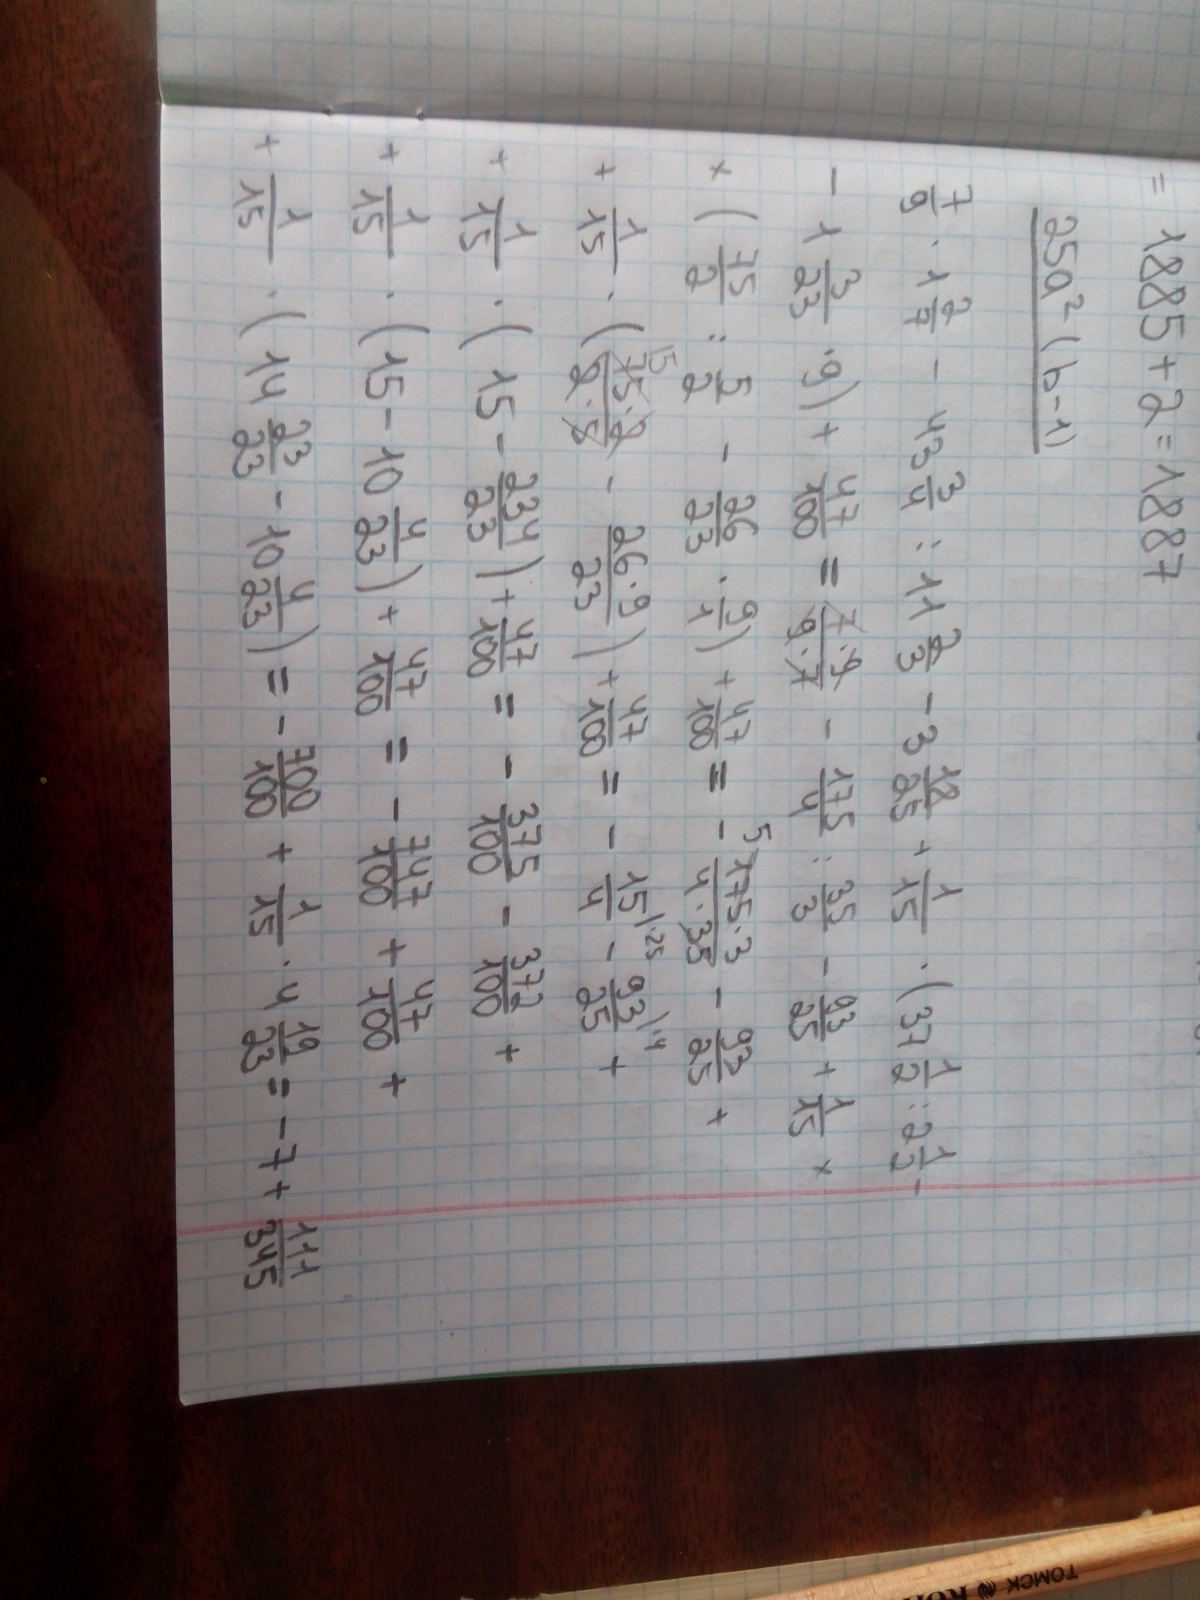 = 1885 + 2 = 1887
25a² (b-1)
7/9 · 1 2/7 - 43 3/4 : 11 2/3 - 3 18/25 + 1/15 · (37 1/2 : 2 1/2 -
- 1 3/23 · 9) + 47/100 = 7·9/9·7 - 175/4 : 35/3 - 93/25 + 1/15 ×
× (75/2 : 5/2 - 26/23 · 9/1) + 47/100 = - 5 175·3/4·35 - 93/25 +
+ 1/15 · (15 75·2/2·5 - 26·9/23) + 47/100 = - 15/4 |·25 - 93/25 |·4 +
+ 1/15 · (15 - 234/23) + 47/100 = - 375/100 - 372/100 +
+ 1/15 · (15 - 10 4/23) + 47/100 = - 747/100 + 47/100 +
+ 1/15 · (14 23/23 - 10 4/23) = - 700/100 + 1/15 · 4 19/23 = - 7 + 111/345
ТОМСК